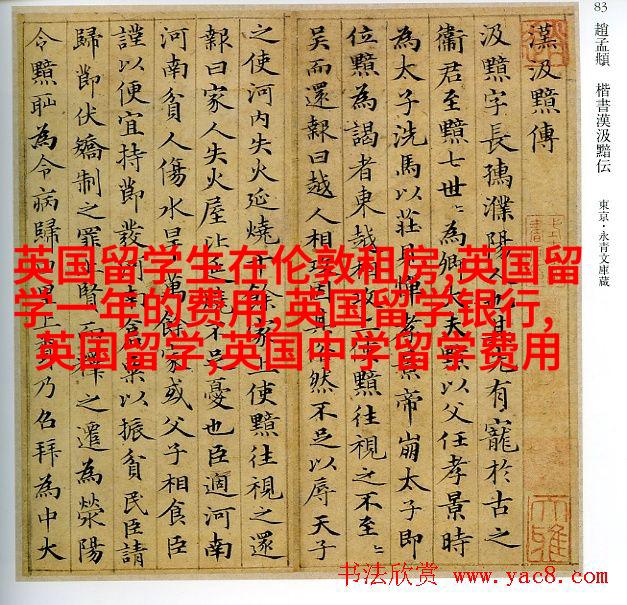 83 趙孟頫 楷書漢汲黯伝 東京・永青文庫蔵
漢汲黯傳
汲黯字長孺濮陽人也其先有寵於古之
衞君至黯七世〻為卿大夫黯以父任孝景時
為太子洗馬以莊見憚孝景帝崩太子即
位黯為謁者東越相攻上使黯往視之不至〻
吴而還報曰越人相攻固其俗然不足以辱天子
之使河内失火延燒千餘家上使黯往視之還
報曰家人失火屋比延燒不足憂也臣過河南
河南貧人傷水旱萬餘家或父子相食臣
謹以便宜持節發河南倉粟以振貧民臣請
歸節伏矯制之罪上賢而釋之遷為滎陽
令黯恥為令病歸田里上聞乃召拜為中大
英国留学生在伦敦租房,英国留
学一年的费用,英国留学银行,
英国留学,英国中学留学费用
书法欣赏 www.yac8.com